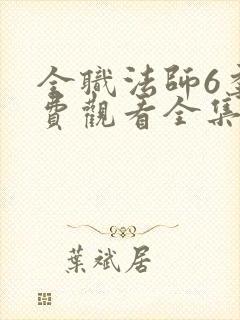 全職法師6季
費觀看全集
葉斌居